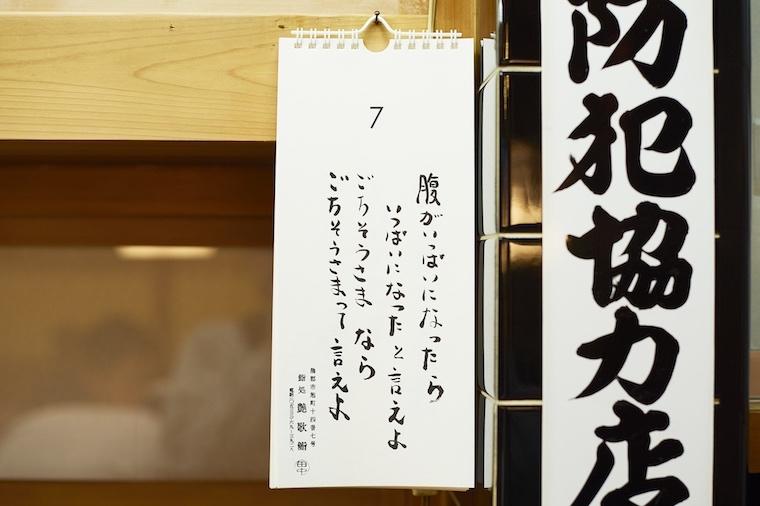 防犯協力店
7
腹がいっぱいになったら
いっぱいになったと言えよ
ごちそうさま なら
ごちそうさまって言えよ
蒲郡市旭町十四番七号
鮨処 艶歌鮨
田中